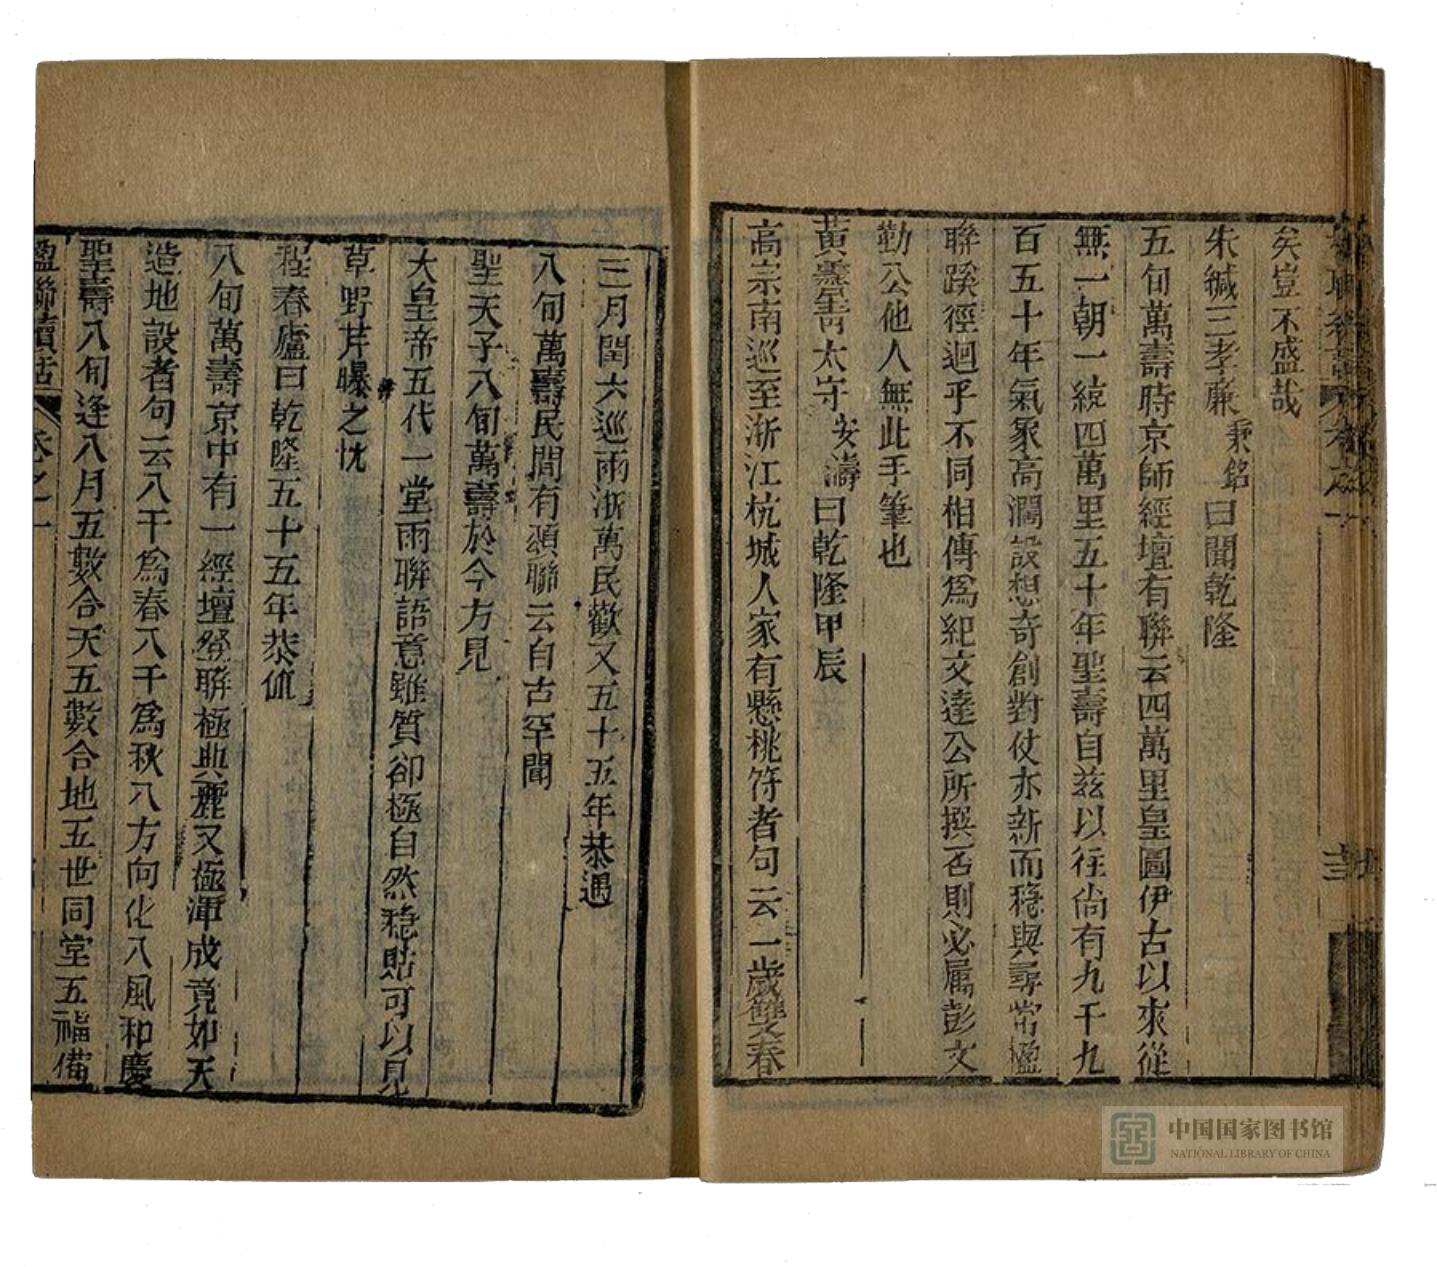 矣豈不盛哉
朱緘三孝廉秉銘曰聞乾隆
五旬萬壽時京師經壇有聯云四萬里皇圖伊古以來從
無一朝一統四萬里五十年聖壽自茲以往尙有九千九
百五十年氣象高濶設想奇創對仗亦新而穩與尋常楹
聯蹊徑迥乎不同相傳爲紀文達公所撰否則必屬彭文
勤公他人無此手筆也
黃霽靑太守安濤曰乾隆甲辰
高宗南巡至浙江杭城人家有懸桃符者句云一歲雙春
三月閏六巡兩浙萬民歡又五十五年恭遇
八旬萬壽民間有頌聯云自古罕聞
聖天子八旬萬壽於今方見
大皇帝五代一堂兩聯語意雖質卻極自然穩貼可以見
草野芹曝之忱
程春廬曰乾隆五十五年恭値
八旬萬壽京中有一經壇燈聯極典麗又極渾成竟如天
造地設者句云八千爲春八千爲秋八方向化八風和慶
聖壽八旬逢八月五數合天五數合地五世同堂五福備
楹聯續話 卷之一
中国国家图书馆
NATIONAL LIBRARY OF CHINA